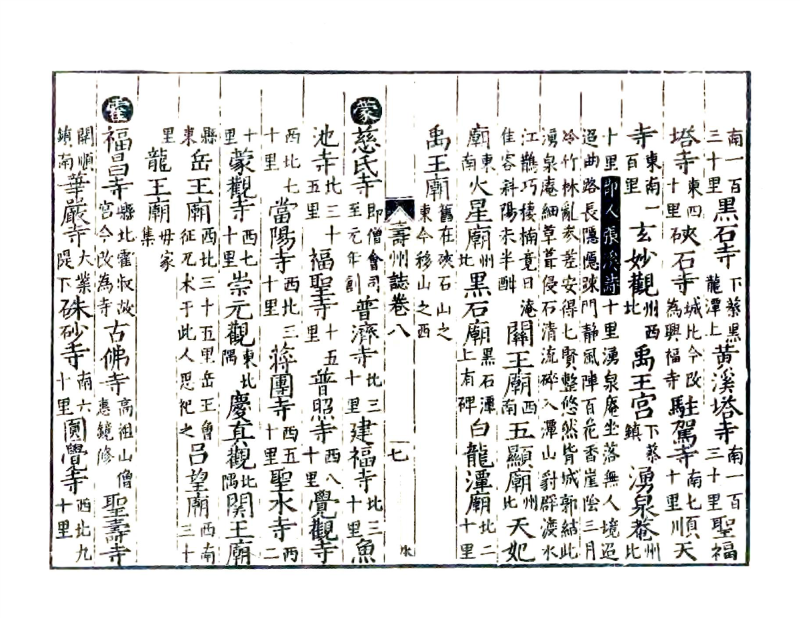 南一百三十里黑石寺下蔡黑龍潭上黃溪塔寺南一百三十里聖福
塔寺東四十里硤石寺城北今改為興福寺駐駕寺南七十里順天
寺東南一百里玄妙觀州西北禹王宮下蔡鎮湧泉菴州北
十里卬人張溪詩十里湧泉庵坐落無人境迢
迢曲路長隱隱踈門静風陣百花香崖陰三月
冷竹林亂參差安得七賢整悠然皆城郭結此
湧泉庵細草葺侵石清流碎入潭山豺群渡水
江鸛巧棲楠竟日淹佳客斜陽未半酣關王廟州西南五顯廟州北天妃
廟東南火星廟州北黑石廟黑石潭上有碑白龍潭廟北二十里
禹王廟舊在硤石山之東今移山之西
壽州誌卷八 七
蒙慈氏寺即僧會司至元年創普濟寺北三十里建福寺北三十里魚
池寺北三十五里福聖寺十五里普照寺西八十里覺觀寺
西北七十里當陽寺西北三十里蔣團寺西五十里聖水寺西二
十里蒙觀寺西七十里崇元觀東北隅慶真觀北隅関王廟
縣東岳王廟西北三十五里岳王會征兀术于此人思祀之吕望廟西南三十
里龍王廟毋家集
霍福昌寺縣北霍叔故宮今改為寺古佛寺高祖山僧惠鏡修聖壽寺
開順鎮南華嚴寺大業堤下硃砂寺南六十里圓覺寺西北九十里